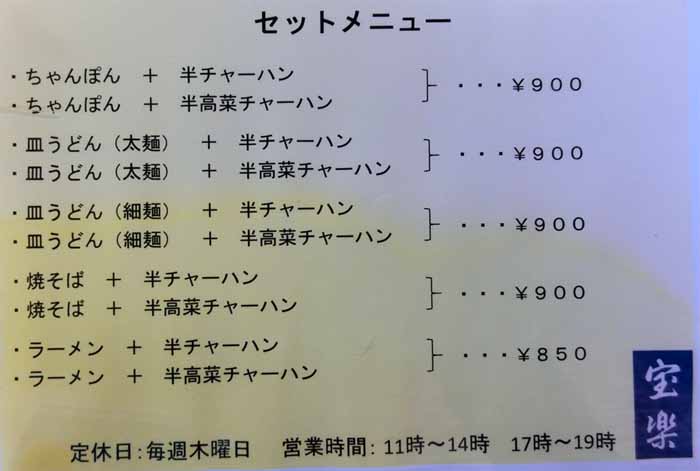 セットメニュー
・ちゃんぽん　＋　半チャーハン
・ちゃんぽん　＋　半高菜チャーハン
・・・￥９００
・皿うどん（太麺）　＋　半チャーハン
・皿うどん（太麺）　＋　半高菜チャーハン
・・・￥９００
・皿うどん（細麺）　＋　半チャーハン
・皿うどん（細麺）　＋　半高菜チャーハン
・・・￥９００
・焼そば　＋　半チャーハン
・焼そば　＋　半高菜チャーハン
・・・￥９００
・ラーメン　＋　半チャーハン
・ラーメン　＋　半高菜チャーハン
・・・￥８５０
宝楽
定休日：毎週木曜日　営業時間： 11時～14時　17時～19時